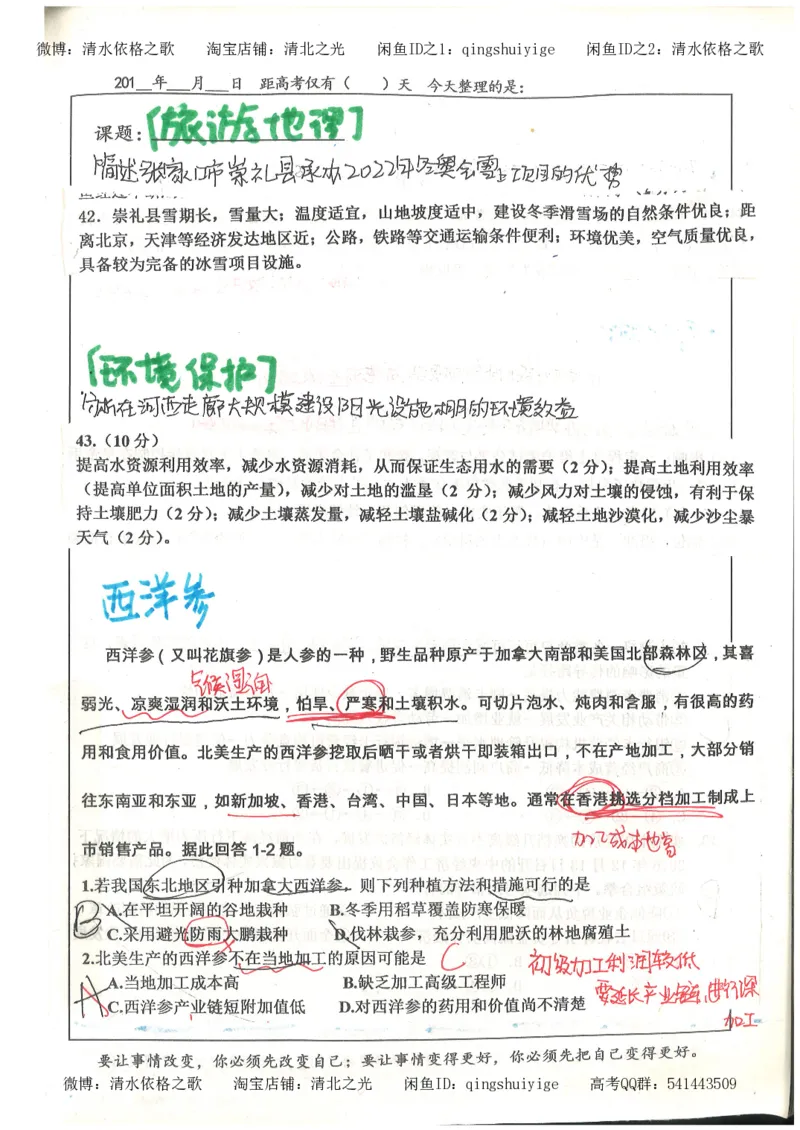 微博：清水依格之歌 淘宝店铺：清北之光 闲鱼ID之1：qingshuiyige 闲鱼ID之2：清水依格之歌
201__年___月___日 距高考仅有（ ）天 今天整理的是：
课题：[旅游地理]
简述张家口市崇礼县承办2022年冬奥会雪上项目的优势
42．崇礼县雪期长，雪量大；温度适宜，山地坡度适中，建设冬季滑雪场的自然条件优良；距
离北京，天津等经济发达地区近；公路，铁路等交通运输条件便利；环境优美，空气质量优良，
具备较为完备的冰雪项目设施。
[环境保护]
分析在河西走廊大规模建设阳光设施棚的环境效益
43.（10分）
提高水资源利用效率，减少水资源消耗，从而保证生态用水的需要（2分）；提高土地利用效率
（提高单位面积土地的产量），减少对土地的滥垦（2 分）；减少风力对土壤的侵蚀，有利于保
持土壤肥力（2分）；减少土壤蒸发量，减轻土壤盐碱化（2分）；减轻土地沙漠化，减少沙尘暴
天气（2分）。
西洋参
西洋参（又叫花旗参）是人参的一种，野生品种原产于加拿大南部和美国北部森林区，其喜
气候湿润
弱光、凉爽湿润和沃土环境，怕旱、严寒和土壤积水。可切片泡水、炖肉和含服，有很高的药
用和食用价值。北美生产的西洋参挖取后晒干或者烘干即装箱出口，不在产地加工，大部分销
往东南亚和东亚，如新加坡、香港、台湾、中国、日本等地。通常在香港挑选分档加工制成上
加工成本也高
市销售产品。据此回答1-2题。
1.若我国东北地区引种加拿大西洋参，则下列种植方法和措施可行的是
B
A.在平坦开阔的谷地栽种 B.冬季用稻草覆盖防寒保暖
C.采用避光防雨大鹏栽种 D.伐林栽参，充分利用肥沃的林地腐殖土
2.北美生产的西洋参不在当地加工的原因可能是 C
初级加工利润较低
A
A.当地加工成本高 B.缺乏加工高级工程师
要延长产业链，进行深
C.西洋参产业链短附加值低 D.对西洋参的药用和价值尚不清楚
加工
要让事情改变，你必须先改变自己；要让事情变得更好，你必须先把自己变得更好。
微博：清水依格之歌 淘宝店铺：清北之光 闲鱼ID：qingshuiyige 高考QQ群：541443509